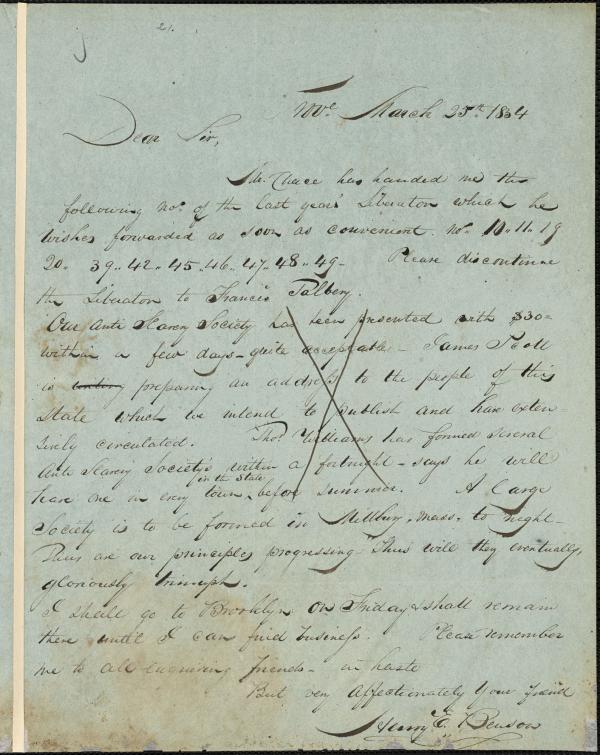 21.
Prov.e March 25th 1834
Dear Sir,
Mr. Chace has handed me the
following nos. of the last year's Liberator which he
wishes forwarded as soon as convenient. no. 10..11..19
20.. 39..42..45..46..47..48..49- Please discontinue
the Liberator to Francis Talbery.
Our Anti Slavery Society has been presented with $30=
within a few days - quite acceptable - James Scott
is preparing an address to the people of this
State which we intend to publish and have exten-
sively circulated. Thos Williams has formed several
Anti Slavery Society's within a fortnight - says he will
have one in every town in the State before summer. A large
Society is to be formed in Millbury, Mass. to night -
Thus are our principles progressing - Thus will they eventually,
gloriously triumph.
I shall go to Brooklyn on Friday & shall remain
there until I can find business. Please remember
me to all enquiring friends - in haste
But very affectionately Your friend
Henry E. Benson